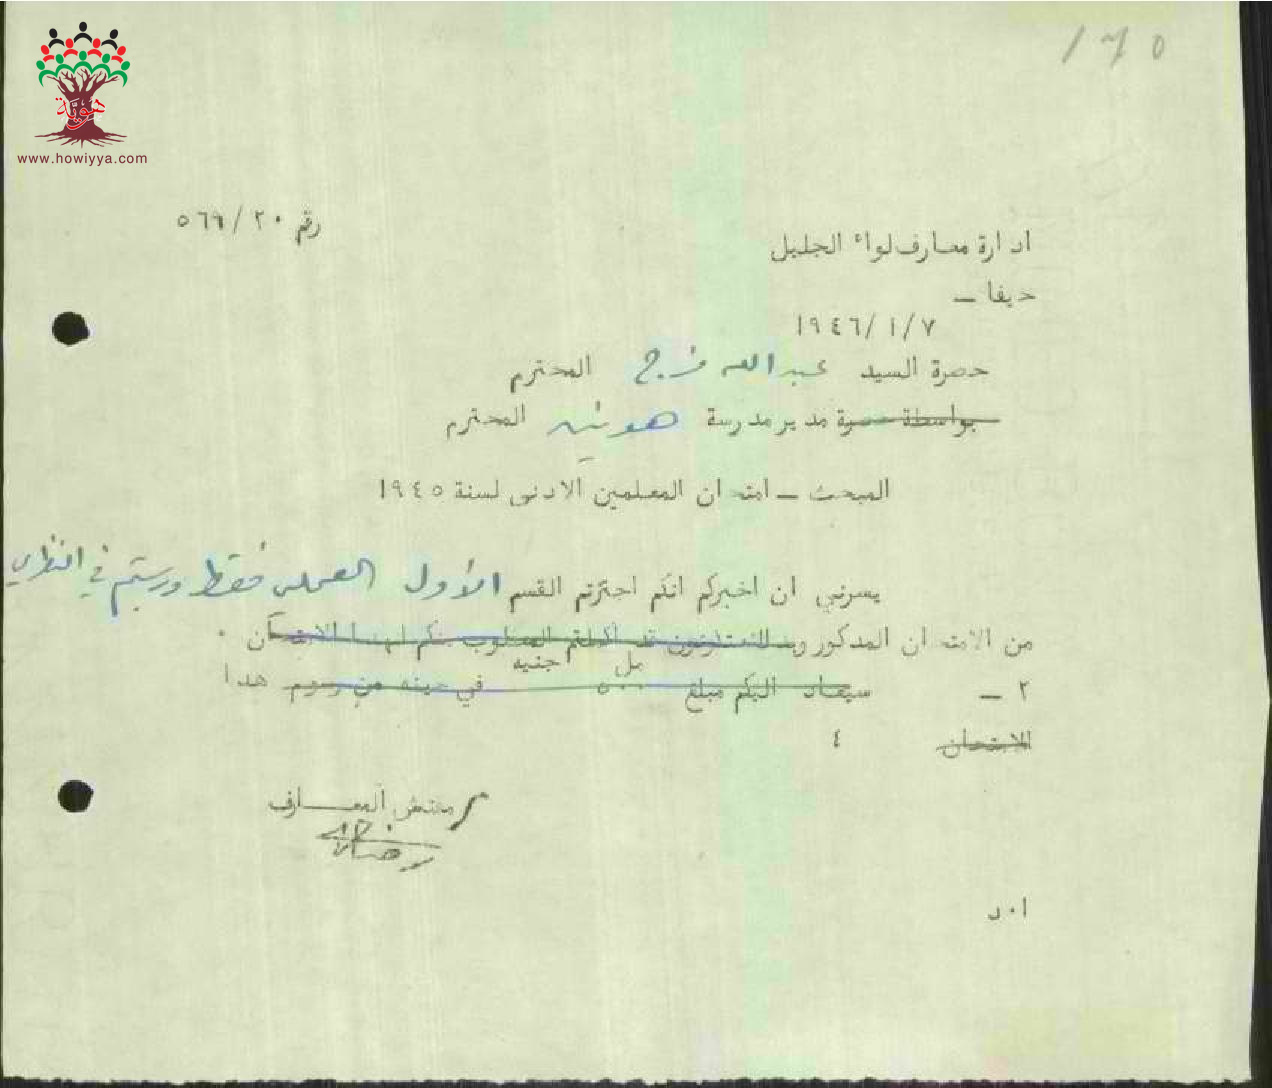 ١٦٥
هويّة
www.howiyya.com
رقم ٢٠/٥٦٩
ادارة معارف لواء الجليل
حيفا —
١٩٤٦/١/٧
حضرة السيد عبد الله فرج المحترم
بواسطة حضرة مدير مدرسة هونين المحترم
المبحث — امتحان المعلمين الادنى لسنة ١٩٤٥
يسرني ان اخبركم انكم اجتزتم القسم الأول العملي فقط ورسبتم في النظري
من الامتحان المذكور المطلوب منكم لهذا الامتحان .
٢ — سيعاد اليكم مبلغ ٥٠٠ مل جنيه في حينه من رسوم هذا
الامتحان ٤
مفتش المعارف
ا.د